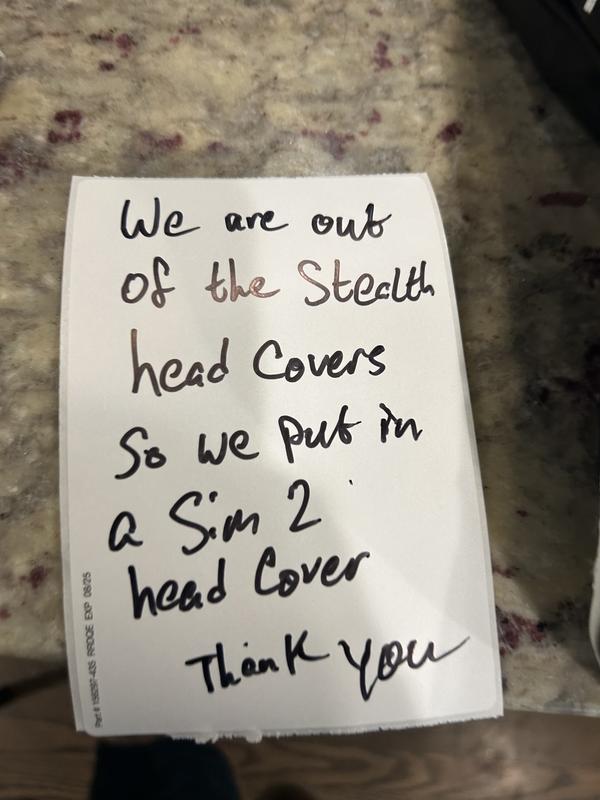 We are out
of the Stealth
head Covers
So we put in
a Sim 2
head Cover
Thank you
Part # 156297-435 RRDQE EXP 08/25